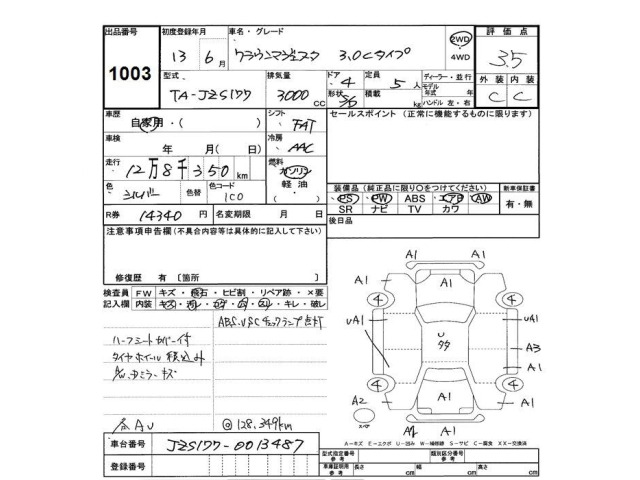 出品番号 1003
初度登録年月 13 6月
車名・グレード クラウンマジェスタ 3.0Cタイプ
2WD 4WD
評価点 3.5
型式 TA-JZS177
排気量 3000 CC
ドア 4
形状
定員 5人
積載 kg
ディーラー・並行
モデル年式 年
ハンドル 左・右
外装 内装
C C
車歴 自家用・( )
シフト FAT
セールスポイント (正常に機能するものに限ります)
車検 年 月(日)
冷房 AAC
走行 12万8千350km
燃料 ガソリン 軽油・( )
色 シルバー 色替
色コード 1C0
装備品(純正品に限り○をつけてください)
PS PW ABS エアB AW
SR ナビ TV カワ
新車保証書 有・無
R券 14340円
名変期限 月 日
後日品
注意事項申告欄(不具合内容等は具体的に記入して下さい)
修復歴 有〔箇所 〕
検査員記入欄
FW キズ・飛石・ヒビ割・リペア跡・×要
内装 キズ・汚レ・コゲ・穴・スレ・キレ・破レ
ABS、VSCチェックランプ点灯
ハーフシートカバー付
タイヤホイール積込み
A/W、ドミラーキズ
AU
◎128,349km
車台番号 JZS177-0013487
登録番号
A1 A1
A1 A1 A1
4 4
UA1 UA1
U
タタ
A3
A1
4 4
A2 A1 A1
スペア
A1 A1
A-キズ E-エクボ U-凹み W-補修跡 S-サビ C-腐食 XX-交換済
型式指定番号 参考
類別区分番号 参考
車庫証明用 参考
長さ cm 幅 cm 高さ cm